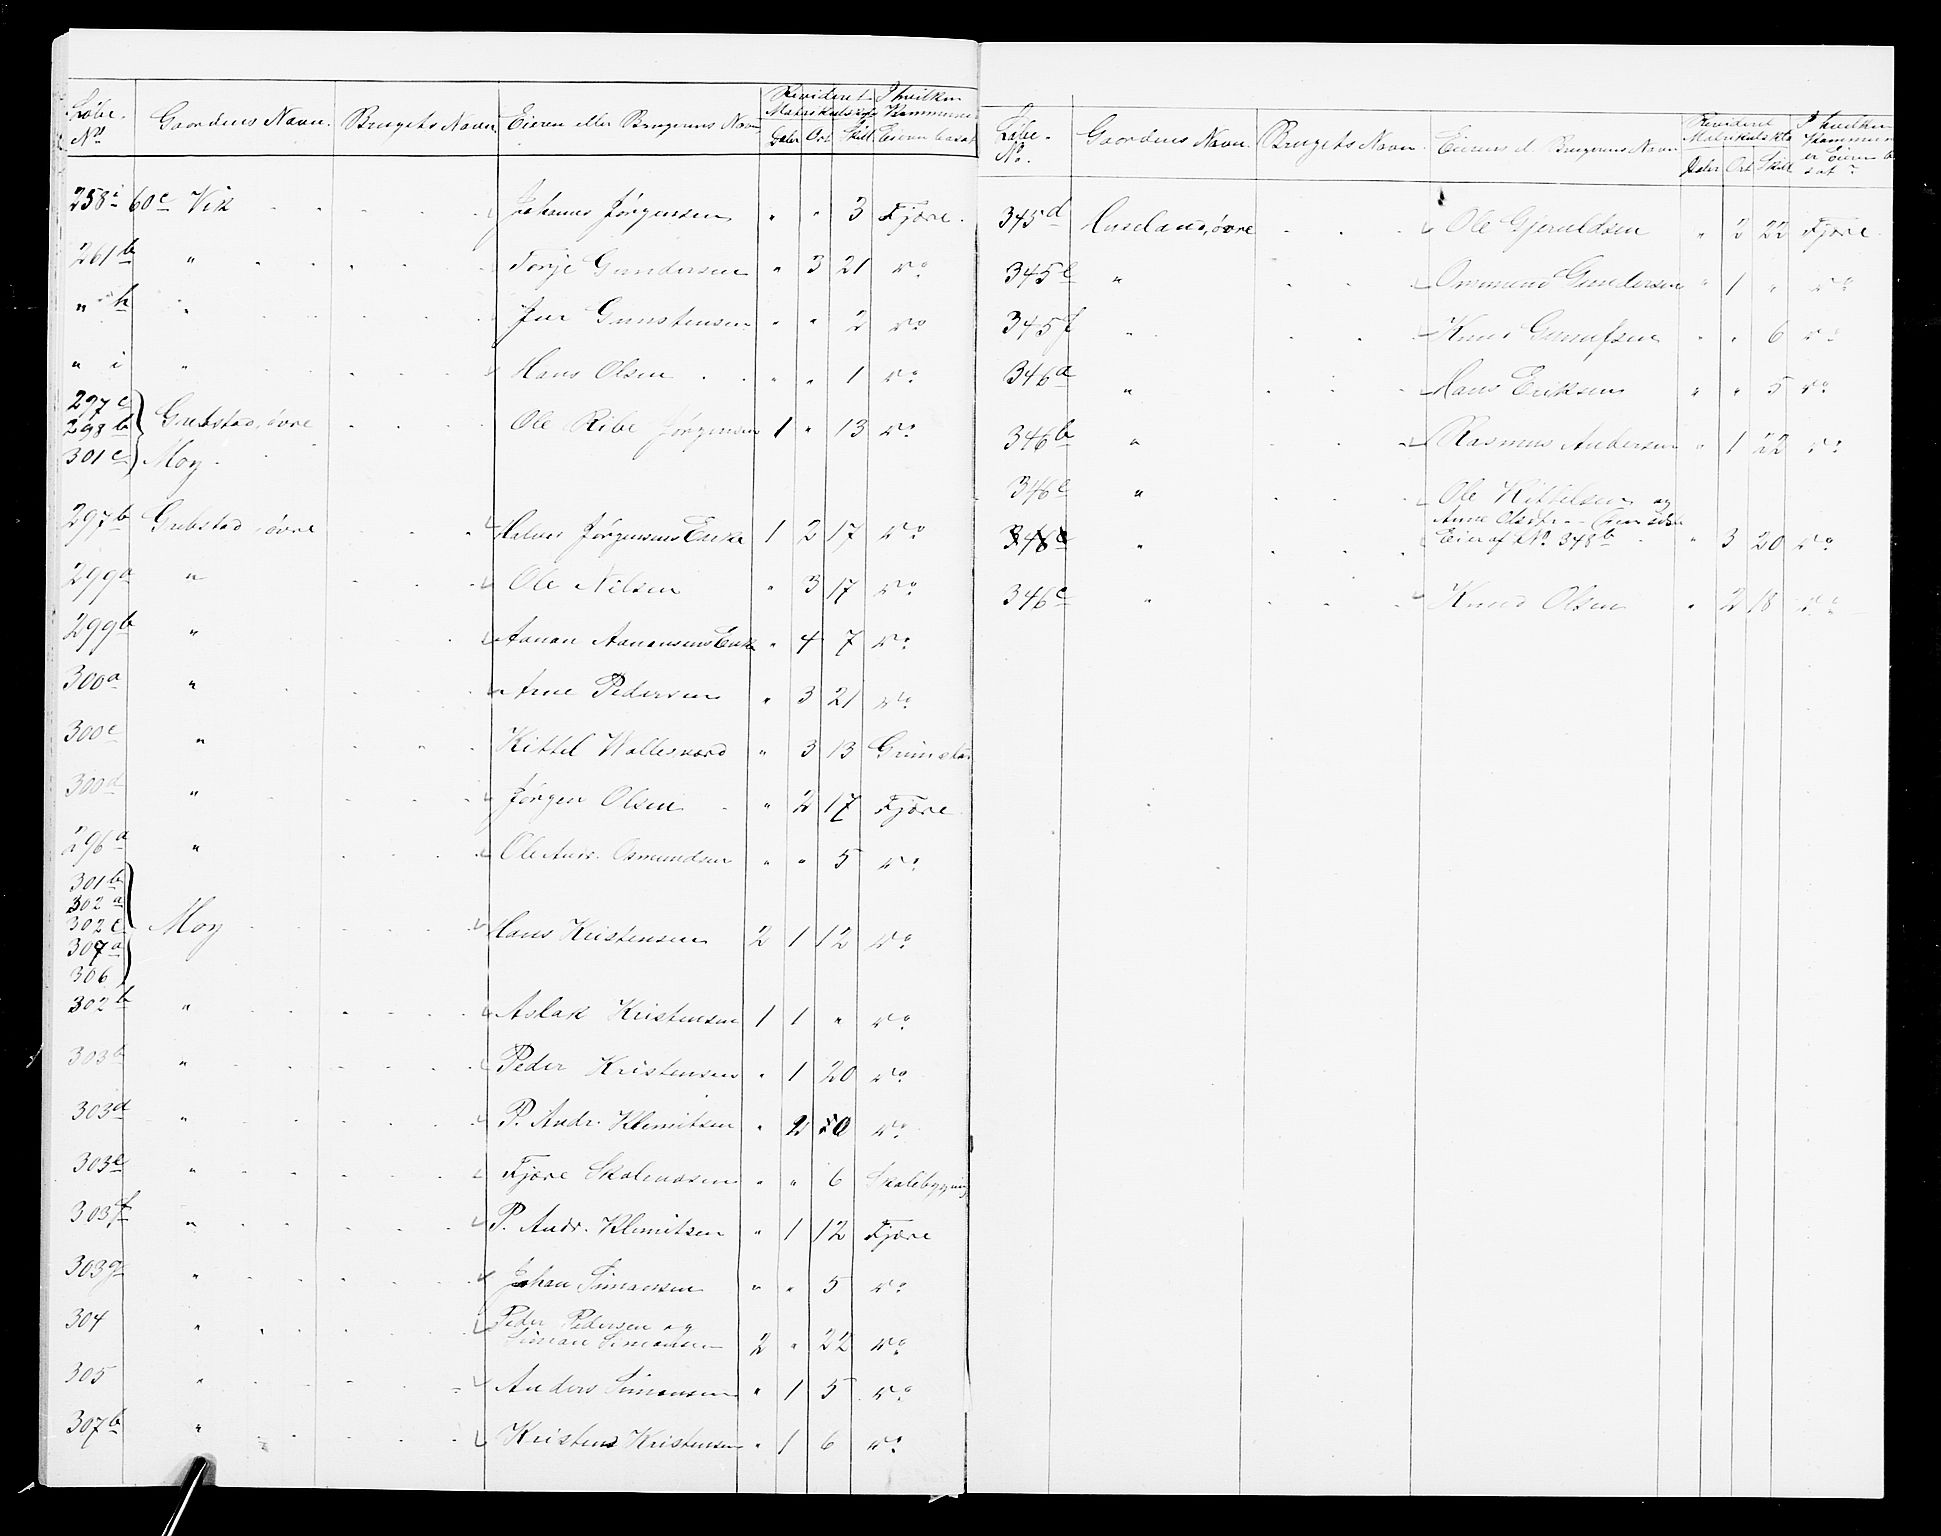 Løbe- No Gaardens Navn. Brugets Navn Eieren eller Brugerens Navn Revideret Matrikulskyld Daler Ort Skill I hvilken Kommune Eieren bosat
258 i 60 c Vik Johannes Jørgensen " " 3 Fjære.
261 b " Terje Gundersen " 3 21 do
" h " Gunstensen " " 2 do
" i " Hans Olsen " " 1 do
297 c
298 b Grebstad, øvre Ole Ribe Jørgensen 1 " 13 do
301 c Moy
297 b Grebstad, øvre Halvor Jørgensens Enke 1 2 17 do
299 a " Ole Nilsen " 3 17 do
299 b " Aanon Aanonsens Enke " 4 7 do
300 a " Arne Pedersen " 3 21 do
300 c " Kittel Wallesværd " 3 13 Grimstad
300 d " Jørgen Olsen " 2 17 Fjære
296 a " Ole Andr. Osmundsen " " 5 do
301 b
302 a
302 c Moy Hans Kristensen 2 1 12 do
307 a
306
302 b " Aslak Kristensen 1 1 " do
303 b " Peder Kristensen " 1 20 do
303 d " P. Andr. Klemitsen " 2 do
303 e " Fjære Skolevæsen " " 6 Skolebygning
303 f " P. Andr. Klemitsen " 1 12 Fjære
303 g " Johan Simonsen " " 5 do
304 " Peder Pedersen og
Simon Simonsen 2 " 22 do
305 " Anders Simonsen " 1 5 do
307 b " Kristen Kristensen " 1 6 do
Løbe- No. Gaardens Navn. Brugets Navn. Eierens el. Brugerens Navn Revideret Matrikulskyld Daler Ort Skill I hvilken Kommune er Eieren bosat
345 d øvre Ole Gjeruldsen " 2 22 Fjære
345 e " Osmund Gundersen " 1 " do
345 f " Knud " " 6 do
346 a " Hans Eriksen " " 5 do
346 b " Rasmus Andersen " 1 22 do
346 c " Ole Kittelsen og
Anne Olsdtr.
348 c " Eier af L No 348 b " 3 20 do
346 e " Knud Olsen " 2 18 do